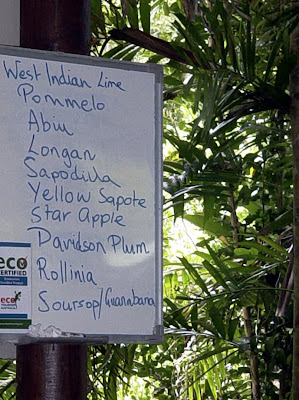 West Indian Lime
Pommelo
Abiu
Longan
Sapodilla
Yellow Sapote
Star Apple
Davidson Plum
Rollinia
Soursop/Guanabana
eco
CERTIFIED
eco